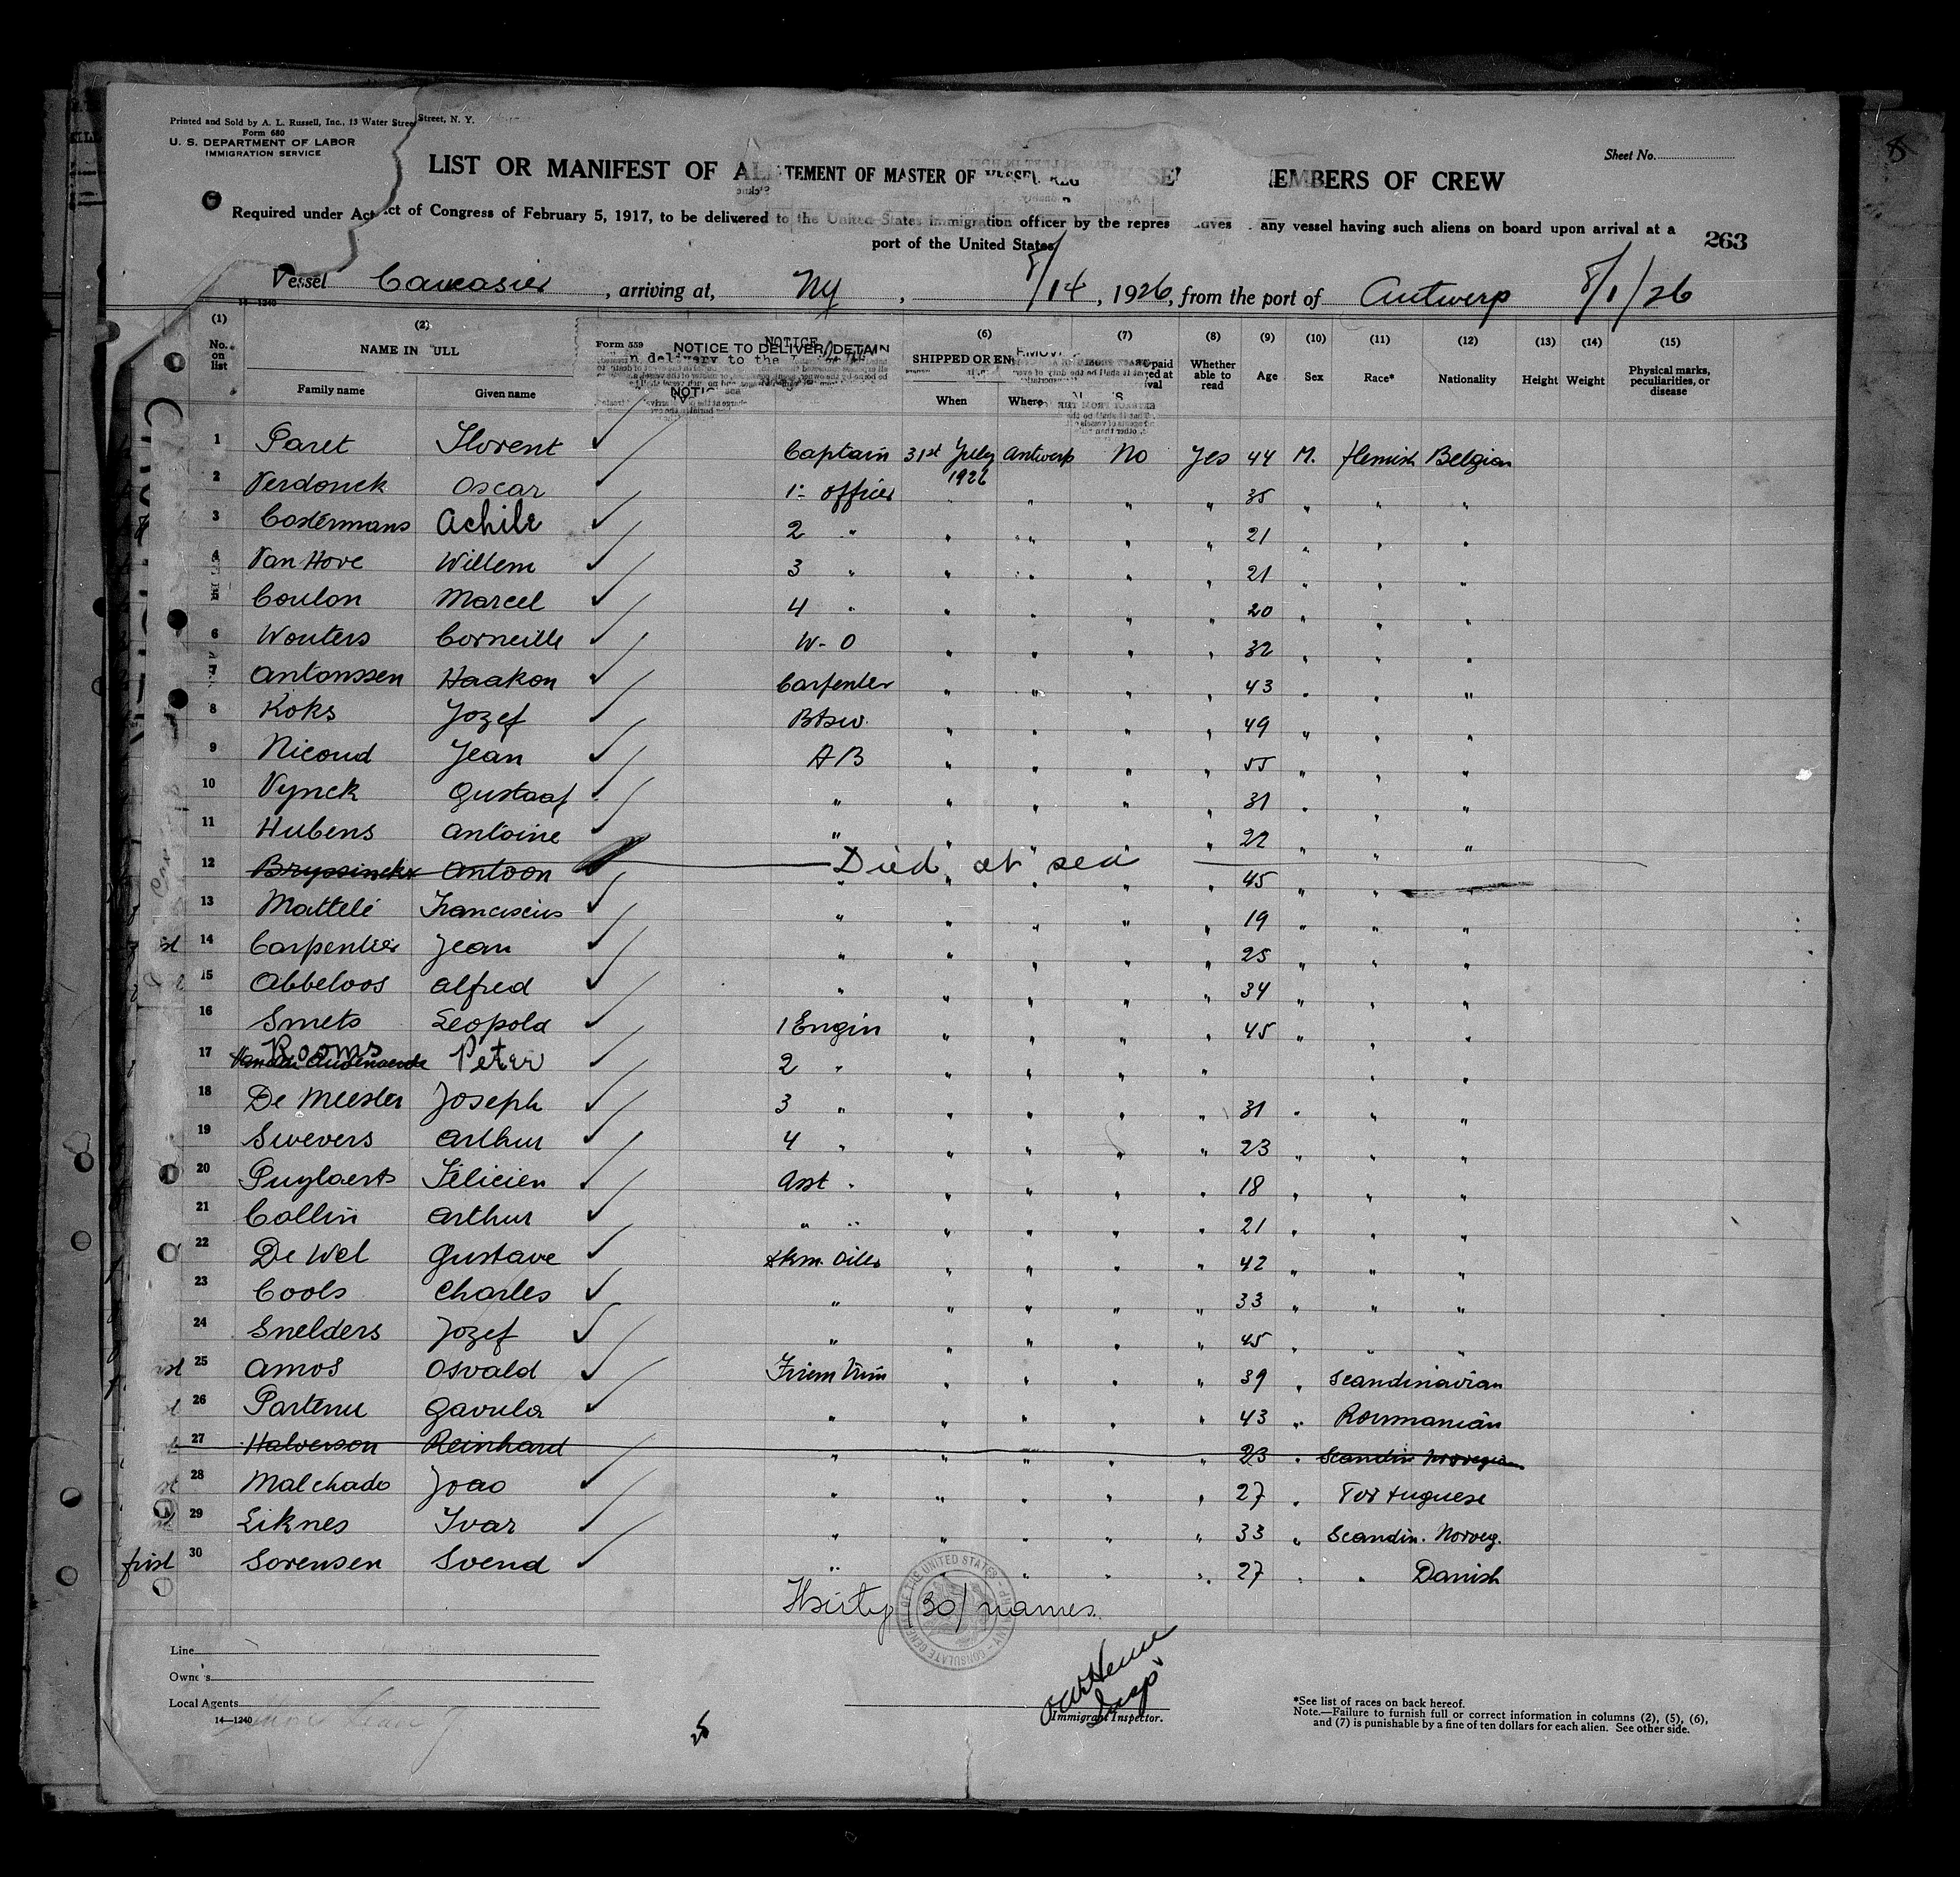 Printed and Sold by A. L. Russell, Inc., 13 Water Street, N. Y.
Form 680
U. S. DEPARTMENT OF LABOR
IMMIGRATION SERVICE
Sheet No.
LIST OR MANIFEST OF TEMENT OF MASTER OF VESSEL REG EMBERS OF CREW
Required under Act of Congress of February 5, 1917, to be delivered to the United States immigration officer by the repres any vessel having such aliens on board upon arrival at a
port of the United States
263
Vessel Caucasier, arriving at, Ny, 8/14, 1926, from the port of Antwerp 8/1/26
14-1240
(1) (2) (6) (7) (8) (9) (10) (11) (12) (13) (14) (15)
No. on list NAME IN ULL Form 559 NOTICE TO DELIVER, DETAIN SHIPPED OR EN Whether able to read Age Sex Race* Nationality Height Weight Physical marks, peculiarities, or disease
Family name Given name When Where
1 Paret Florent Captain 31st July 1926 Antwerp No Yes 44 M. flemish Belgian
2 Verdonck Oscar 1: officer " " " 35 " " "
3 Costermans Achile 2 " " " " " 21 " " "
4 Van Hove Willem 3 " " " " " 21 " " "
5 Coulon Marcel 4 " " " " " 20 " " "
6 Wouters Corneille W-O " " " " 32 " " "
7 Antonssen Haakon Carpenter " " " " 43 " " "
8 Koks Jozef Btsw. " " " " 49 " " "
9 Nicoud Jean AB " " " " 55 " " "
10 Vynck Gustaaf " " " " " 31 " " "
11 Hubens Antoine " " " " " 22 " " "
12 Bryssinckx Antoon Died at sea " " " " " 45 " "
13 Mattelé Franciscus " " " " " 19 " " "
14 Carpentier Jean " " " " " 25 " " "
15 Abbeloos Alfred " " " " " 34 " " "
16 Smets Leopold 1 Engin " " " " 45 " " "
17 Rooms Peter 2 " " " " " " "
18 De Meester Joseph 3 " " " " " 31 " " "
19 Swevers Arthur 4 " " " " " 23 " " "
20 Puylaert Félicien Asst " " " " " 18 " " "
21 Collin Arthur " " " " " " 21 " " "
22 De Wel Gustave " " " " 42 " " "
23 Cools Charles " " " " " 33 " " "
24 Snelders Jozef " " " " " 45 " " "
25 Amos Osvald " " " " 39 " Scandinavian
26 Partenu Gavula " " " " " 43 " Roumanian
27 Halverson Reinhard " " " " " 23 " Scandin Norvegian
28 Malchado Joao " " " " " 27 " Portuguese
29 Eiknes Ivar " " " " " 33 " Scandin. Norveg.
first 30 Sorensen Svend " " " " " 27 " " Danish
Thirty (30) names.
Line
Owners
Local Agents
14—1240
Insp
Immigrant Inspector.
*See list of races on back hereof.
Note.—Failure to furnish full or correct information in columns (2), (5), (6),
and (7) is punishable by a fine of ten dollars for each alien. See other side.